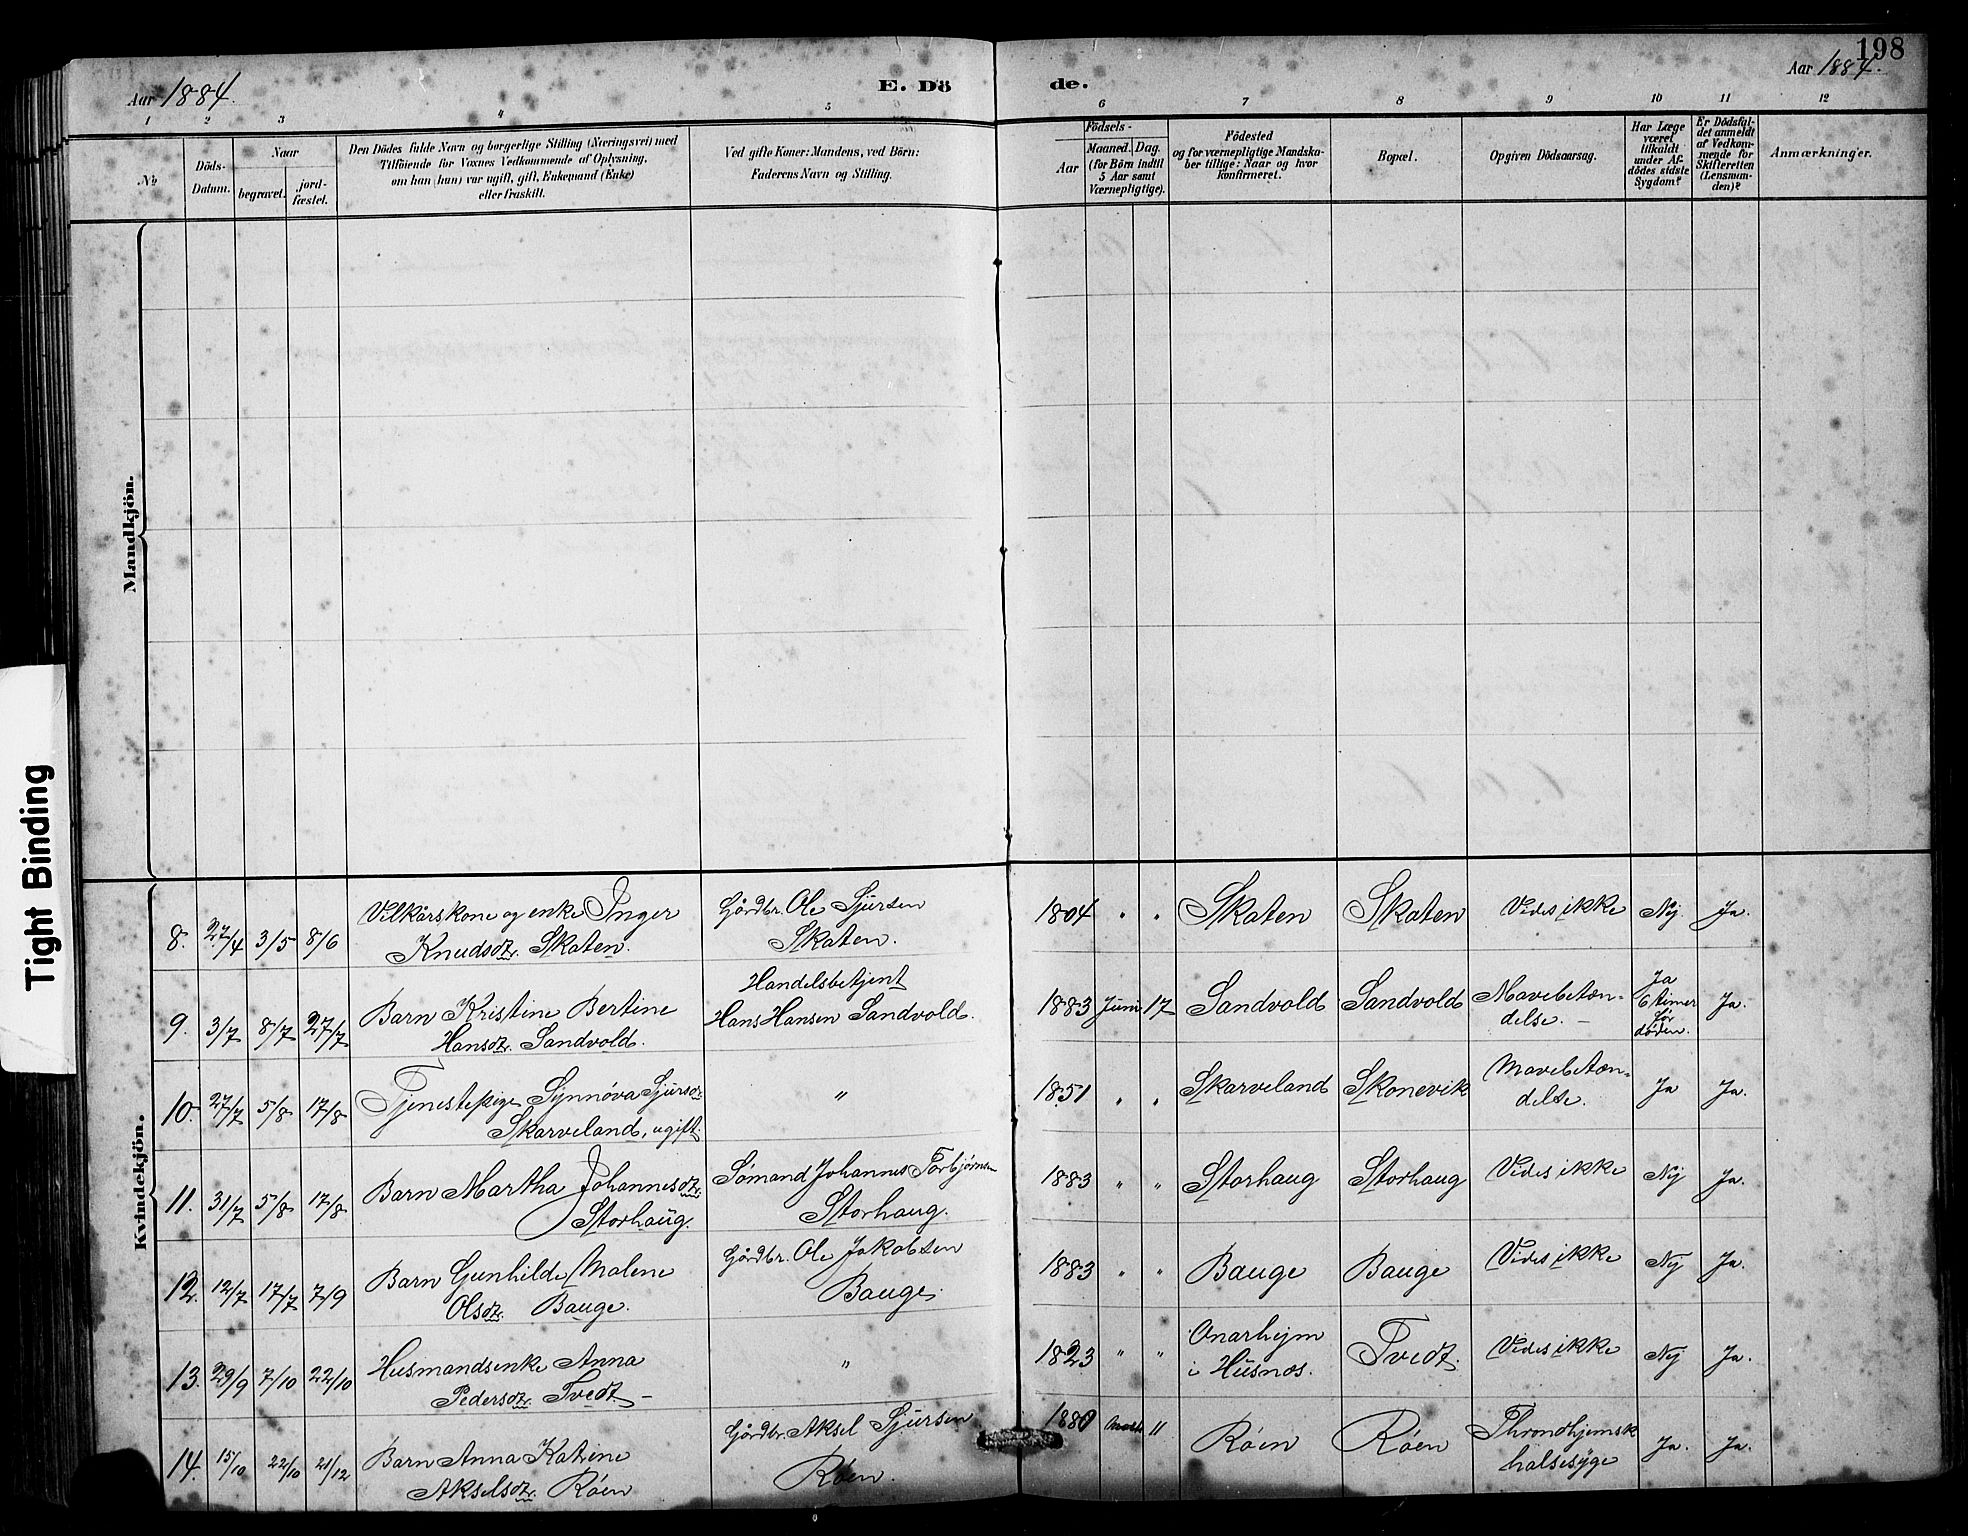 198
Aar 1884.
E. Dö
de.
Aar 1884.
1 2 3 4 5 6 7 8 9 10 11 12
No
Döds-Datum.
Naar
begravet.
jord-fæstet.
Den Dödes fulde Navn og borgerlige Stilling (Næringsvei) med
Tilföiende for Voxnes Vedkommende af Oplysning,
om han (hun) var ugift, gift, Enkemand (Enke)
eller fraskilt.
Ved gifte Koner: Mandens, ved Börn:
Faderens Navn og Stilling.
Födsels-
Aar
Maaned. Dag.
(for Börn indtil
5 Aar samt
Værnepligtige).
Födested
og for værnepligtige Mandska-
ber tillige: Naar og hvor
konfirmeret.
Bopæl.
Opgiven Dödsaarsag.
Har Læge
været
tilkaldt
under Af-
dödes sidste
Sygdom?
Er Dödsfal-
det anmeldt
af Vedkom-
mende for
Skifteretten
(Lensman-
den)?
Anmærkninger.
Mandkjön.
Tight Binding
Kvindekjön.
8. 27/4 3/5 8/6 Vilkårskone og enke Inger
Knudsdtr. Skaten.
Gårdbr. Ole Sjursen
Skaten.
1804 " " Skaten Skaten Vides ikke Nej Ja.
9. 3/7 8/7 27/7 Barn Kristine Bertine
Hansdtr. Sandvold.
Handelsbetjent
Hans Hansen Sandvold.
1883 Juni 17 Sandvold Sandvold Mavebetæn-
delse. –
Ja
6 timer
før
døden.
Ja.
10. 27/7 5/8 17/8 Tjenestepige Synnøva Sjursdtr.
Skarveland, ugift.
"
1851 " " Skarveland Skonevik Mavebetæn-
delse.
Ja Ja.
11. 31/7 5/8 17/8 Barn Martha Johannesdtr.
Storhaug.
Sømand Johannes Torbjørnsen
Storhaug.
1883 " " Storhaug Storhaug Vides ikke Nej Ja.
12. 12/7 17/7 7/9 Barn Gunhilde Malene
Olsdtr. Bauge.
Gårdbr. Ole Jakobsen
Bauge.
1883 " " Bauge Bauge Vides ikke Nej Ja.
13. 29/9 7/10 22/10 Husmandsenke Anna
Pedersdtr. Tvedt –
"
1823 " " Onarhejm
i Husnes.
Tvedt. Vides ikke Nej Ja.
14. 15/10 22/10 21/12 Barn Anna Katrine
Akselsdtr. Røen
Gårdbr. Aksel Sjursen
Røen.
1880 11 Røen Røen Throndhjemsk
halsesyge
Ja. Ja.